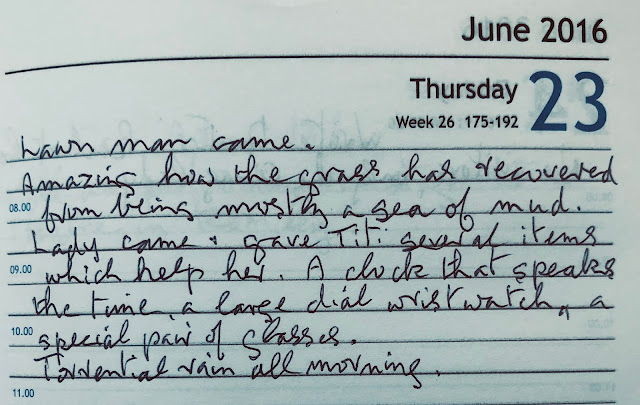 June 2016
Thursday 23
Week 26 175-192
Lawn man came.
Amazing how the grass has recovered
08.00 from being mostly a sea of mud.
Lady came & gave Titi several items
09.00 which help her. A clock that speaks
the time, a large dial wristwatch, a
10.00 special pair of glasses.
Torrential rain all morning.
11.00